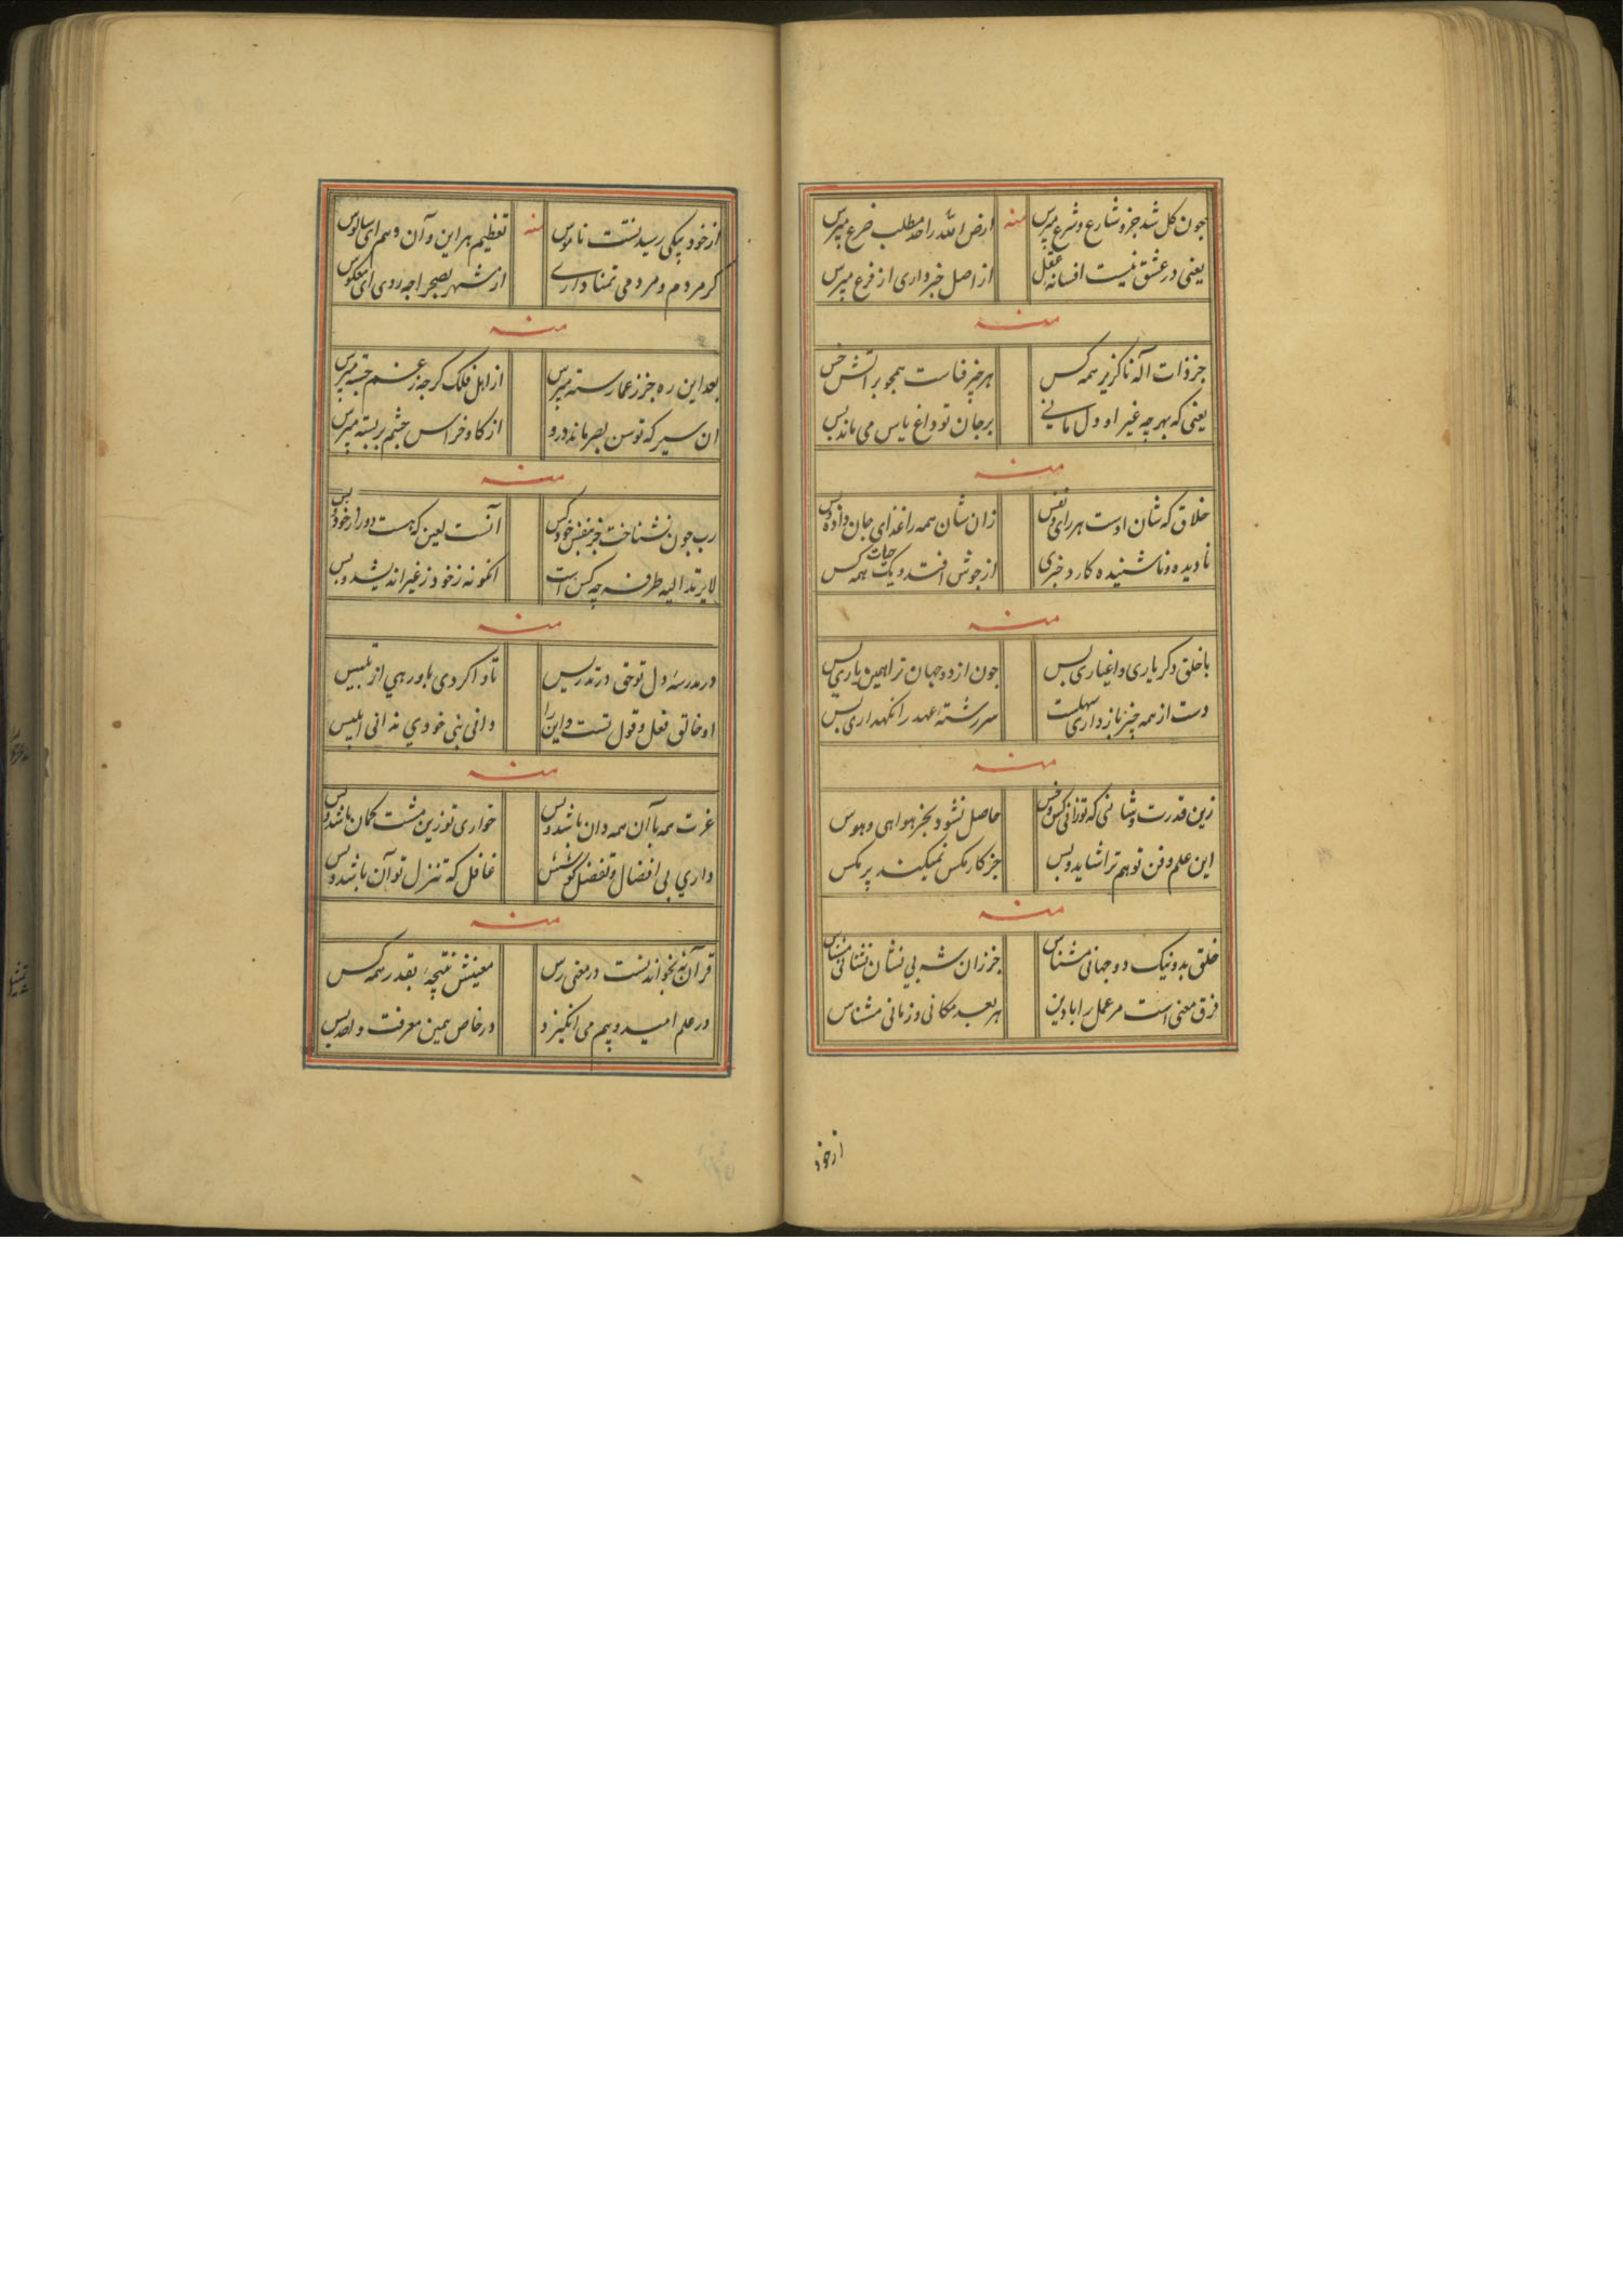 چون کل شد جزو شارع و شرع مپرس منه ارض الله را حد مطلب ضرع مپرس
یعنی در عشق نیست افسانه عقل از اصل خبر داری از فرع مپرس
منه
جز ذات اله ناگزیر همه کس هر چیز فناست همچو بر آتش خس
یعنی که بهر چه غیر او دل مانی بر جان تو داغ یاس می ماند بس
منه
خلاق که شان اوست هر رای و نفس زان شان همه را غذای جان داده و بس
نادیده و ناشنیده کارد خبری از جوش افتد و یک جهات همه کس
منه
با خلق دکر یاری و اغیاری بس چون از دو جهان ترا همین یاری بس
دست از همه چیز باز داری سهلست سر رشته عهد را نکهداری بس
منه
زین قدرت و شانی که تو زانی کس و خس حاصل نشود بجز هوایی و هوس
این علم و فن تو هم ترا شاید و بس جز کار مکس نمیکند پر مکس
منه
خلق بد و نیک دو جهانی مشناس جز زان شه بی نشان نشانی مشناس
فرق معنی است مر عمل را با دین هر بعد مکانی و زمانی مشناس
از خود
از خود بیکی رسید نست ناموس منه تعظیم هر این و آن و هم ای سالوس
کر مردم و مردمی تمنا داری از شهر بصحرا چه روی ای معکوس
منه
بعد این ره جز ز عمارسته مپرس از اهل فلک کرچه ز غم خسته مپرس
آن سیر که توسن بصر ماند درو از کاو خراس چشم بر بسته مپرس
منه
رب چون نشناخت جز بنفس خود کس آنست لعین که هست دور از خود و بس
لا یرتد الیه طرفه چه کس است انکونه ز خود ز غیر اندیشد و بس
منه
در مدرسه دل تو حق در تدریس تا وا کردی باور هی از تلبیس
او خالق فعل و قول تست و این را دانی بنی خودی ندانی ابلیس
منه
عزت همه با آن همه دان باشد و بس خواری تو زین مشت کمان باشد و بس
داری بی افضال و تفضل کوشش غافل که تنزل تو آن باشد و بس
منه
قرآن نه بخواندنست در معنی رس معینش نتیجه بقدر همه کس
در علم امید و بیم می انکیزد در خاص همین معرفت و بس